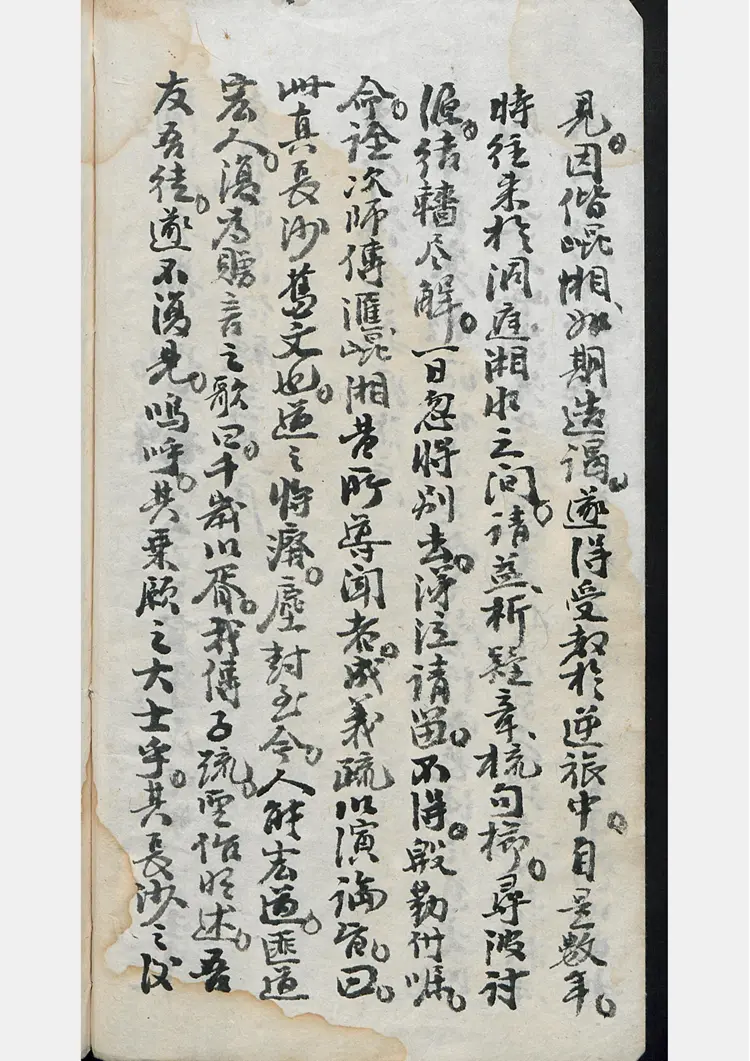 見。因偕崐湘如期造謁。遂得受教於逆旅中。自是數年。
時往來於洞庭湘水之间。请益析疑。章梳句櫛。尋波討
源。结轖尽解。一日忽將别去。涕泣请留。不得。殷勤付嘱。
命诠次師傳滙崐湘昔所尊闻者。成義疏以演論旨。曰。
此真長沙舊文也。道之將癠。塵封至今。人能宏道。匪道
宏人。復为贈言之歌曰。千歲以胥。我傳子疏。聖作明述。吾
友吾徒。遂不復見。嗚呼。其乘願之大士乎。其長沙之後